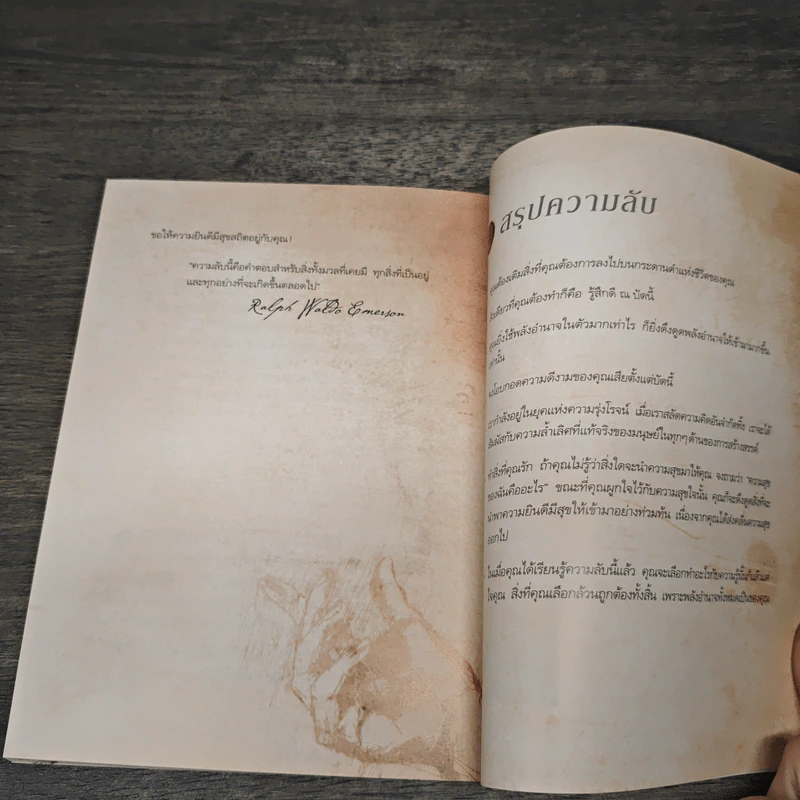 ขอให้ความยินดีมีสุขสถิตอยู่กับคุณ!
"ความลับนี้คือคำตอบสำหรับสิ่งทั้งมวลที่เคยมี ทุกสิ่งที่เป็นอยู่
และทุกอย่างที่จะเกิดขึ้นตลอดไป"
Ralph Waldo Emerson
สรุปความลับ
คุณต้องเติมสิ่งที่คุณต้องการลงไปบนกระดานดำแห่งชีวิตของคุณ
สิ่งเดียวที่คุณต้องทำก็คือ รู้สึกดี ณ บัดนี้
คุณยิ่งใช้พลังอำนาจในตัวมากเท่าไร ก็ยิ่งดึงดูดพลังอำนาจให้เข้ามามากขึ้น
เท่านั้น
จงโอบกอดความดีงามของคุณเสียตั้งแต่บัดนี้
เรากำลังอยู่ในยุคแห่งความรุ่งโรจน์ เมื่อเราสลัดความคิดอันจำกัดทิ้ง เราจะได้
สัมผัสกับความล้ำเลิศที่แท้จริงของมนุษย์ในทุกๆ ด้านของการสร้างสรรค์
ทำสิ่งที่คุณรัก ถ้าคุณไม่รู้ว่าสิ่งใดจะนำความสุขมาให้คุณ จงถามว่า "ความสุข
ของฉันคืออะไร" ขณะที่คุณผูกใจไว้กับความสุขใจนั้น คุณก็จะดึงดูดสิ่งที่จะ
นำพาความยินดีมีสุขให้เข้ามาอย่างท่วมท้น เนื่องจากคุณได้ส่งคลื่นความสุข
ออกไป
ในเมื่อคุณได้เรียนรู้ความลับนี้แล้ว คุณจะเลือกทำอะไรกับความรู้นี้นั้นก็แล้วแต่
ใจคุณ สิ่งที่คุณเลือกล้วนถูกต้องทั้งสิ้น เพราะพลังอำนาจทั้งหมดเป็นของคุณ